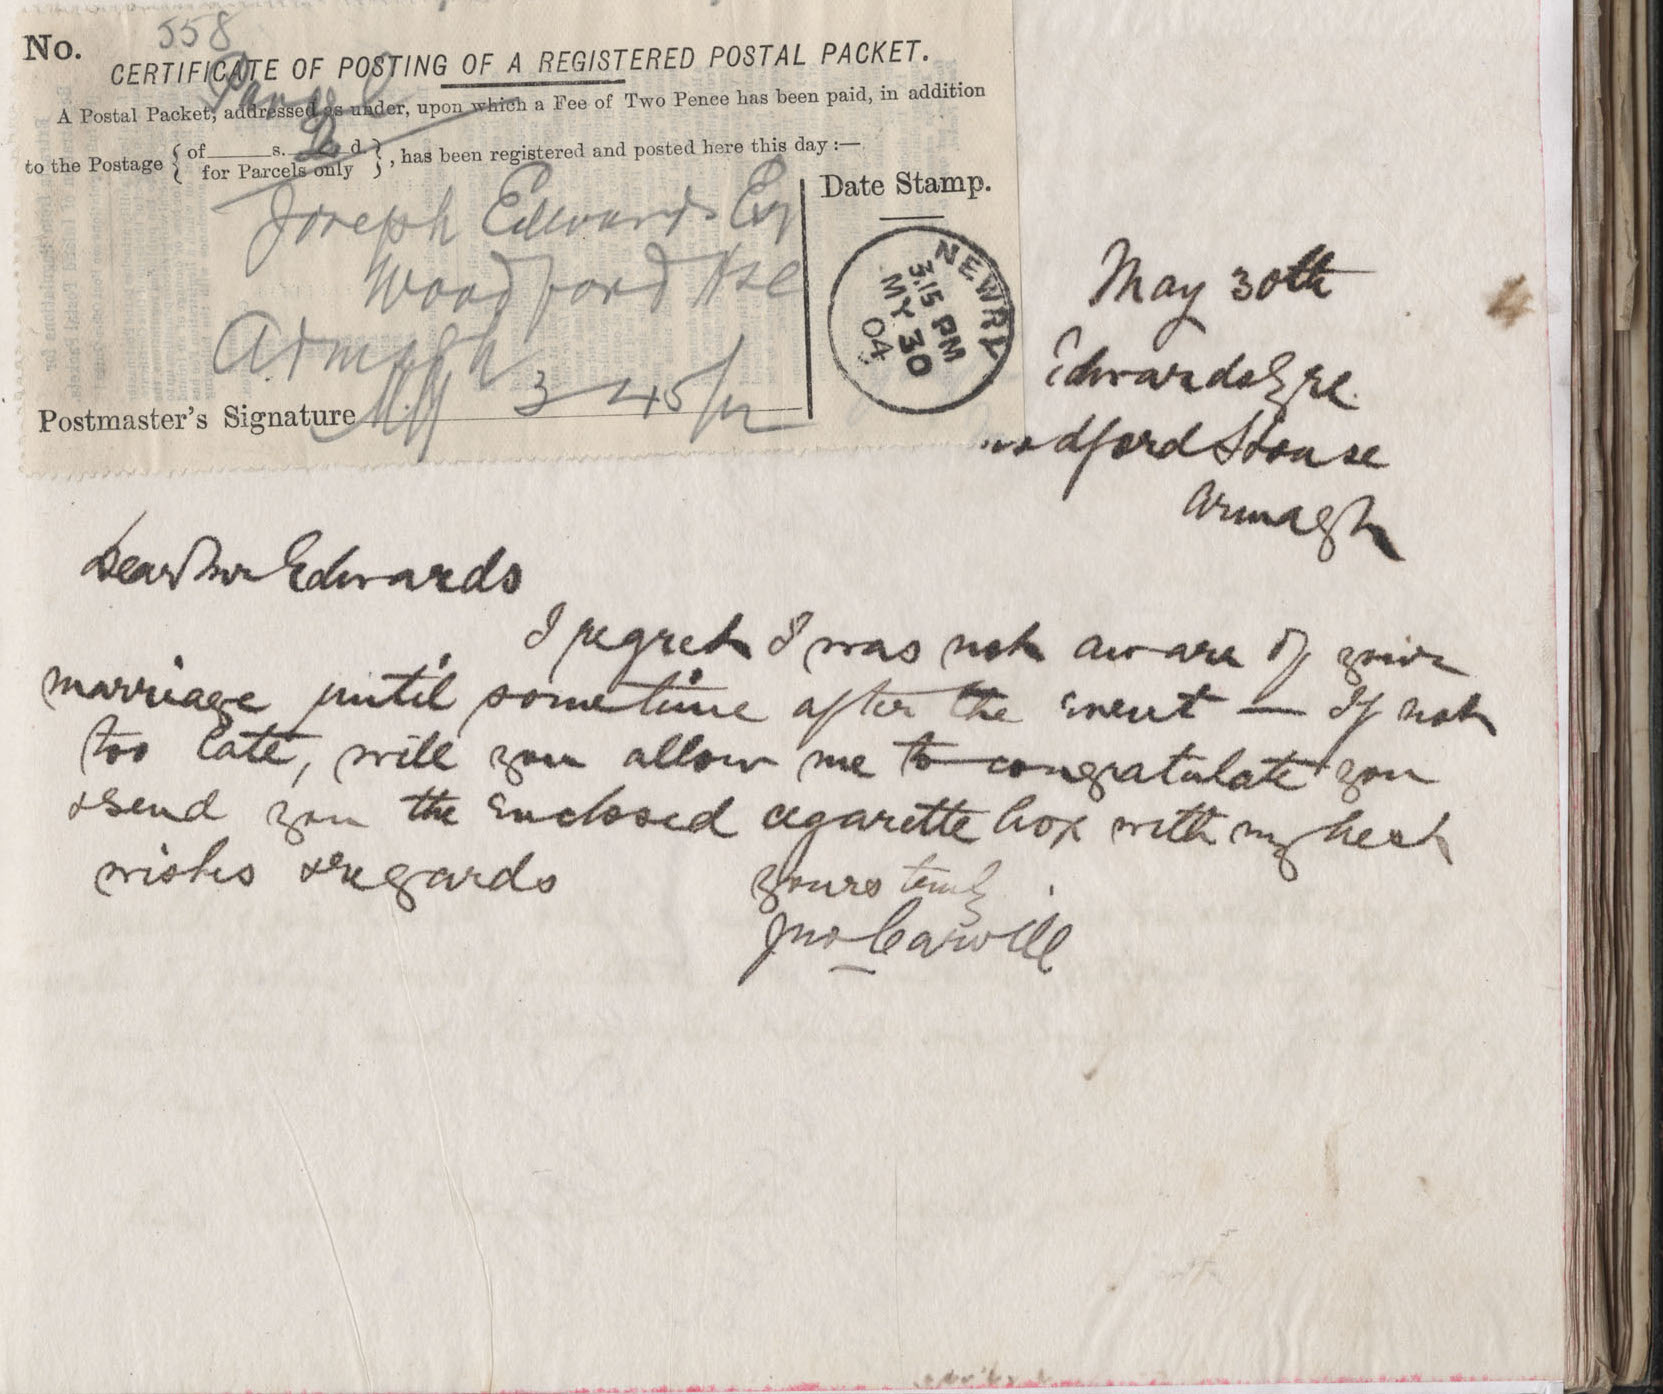 No. 558
CERTIFICATE OF POSTING OF A REGISTERED POSTAL PACKET.
Parcel
A Postal Packet, addressed as under, upon which a Fee of Two Pence has been paid, in addition
to the Postage { of s. d. } , has been registered and posted here this day :—
for Parcels only
Joseph Edwards Esq
Woodford Hse
Armagh
Postmaster's Signature 3 45/
Date Stamp.
NEWRY
3.15 PM
MY 30
04
May 30th
Edwards Esqre
odford House
Armagh
Dear Mr Edwards
I regret I was not aware of your
marriage until sometime after the event — If not
too late, will you allow me to congratulate you
& send you the enclosed cigarette box with my best
wishes & regards
yours truly
Jno Carvill